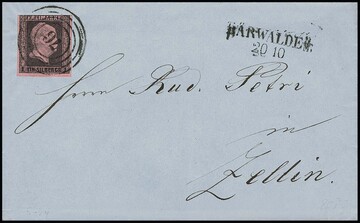 FREIMARKE
1 SILBERGR.
BÄRWALDE N.
20 10
Herrn Rud. Petri
in
Zellin.